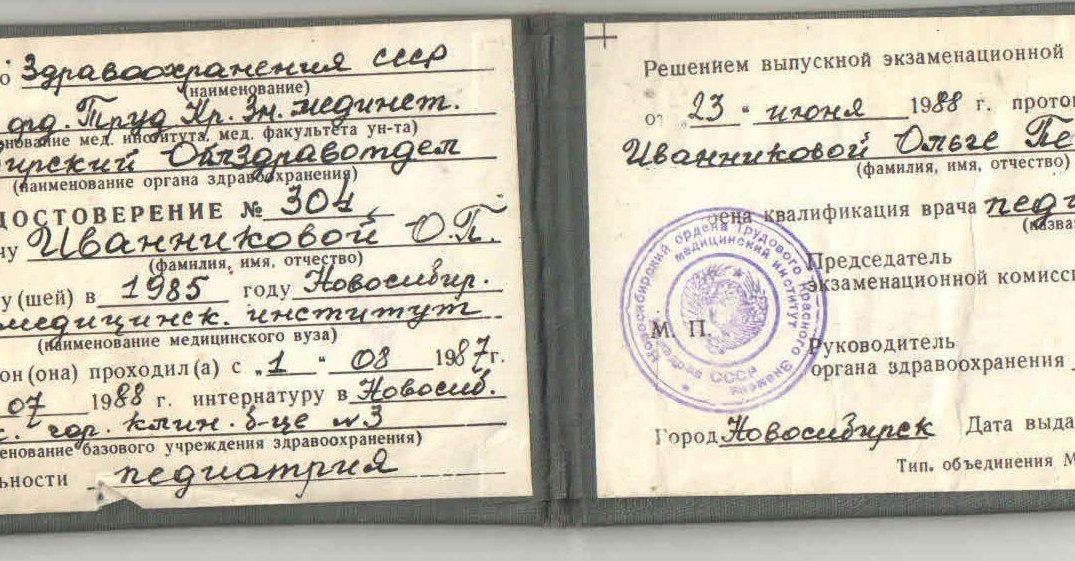 о Здравоохранения СССР
(наименование)
орд. Труд Кр. Зн. мединст.
нование мед. института, мед. факультета ун-та)
ирский Облздравотдел
(наименование органа здравоохранения)
ДОСТОВЕРЕНИЕ № 304
чу Иванниковой О.П.
(фамилия, имя, отчество)
у (шей) в 1985 году Новосибир.
медицинск. институт
(наименование медицинского вуза)
он (она) проходил(а) с „1" 08 1987 г.
07 1988 г. интернатуру в Новосиб.
гор. клин. б-це №3
енование базового учреждения здравоохранения)
ьности педиатрия
Решением выпускной экзаменационной
от „23" июня 1988 г. прото
Иванниковой Ольге Пе
(фамилия, имя, отчество)
оена квалификация врача пед
(назва
Председатель
экзаменационной комисси
М. П.
Руководитель
органа здравоохранения
Город Новосибирск Дата выда
Тип. объединения М
Новосибирский ордена Трудового Красного Знамени
медицинский институт
Минздрав СССР